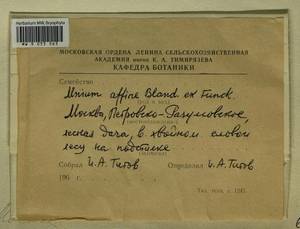 Herbarium MW, Bryophyta
МОСКОВСКАЯ ОРДЕНА ЛЕНИНА СЕЛЬСКОХОЗЯЙСТВЕННАЯ
АКАДЕМИЯ имени К. А. ТИМИРЯЗЕВА
КАФЕДРА БОТАНИКИ
Семейство
Mnium affine Bland ex Funck.
(род и вид)
Москва, Петровско-Разумовское,
лесная дача, в хвойном еловом
лесу на подстилке
Собрал И.А. Титов Определил И.А. Титов
196 г.